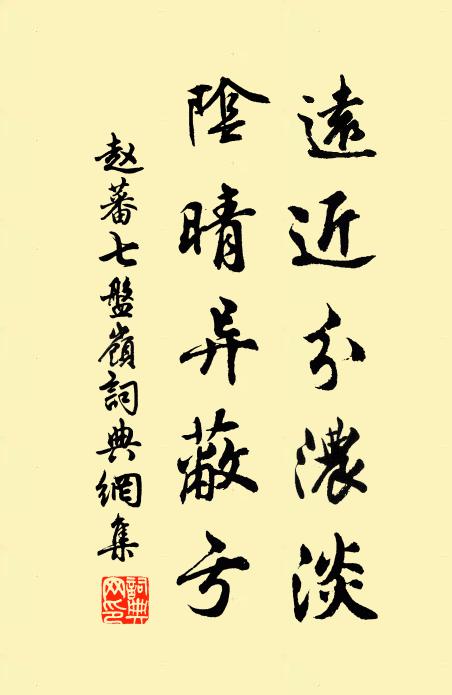 遠近分濃淡
陰晴异蔽亏
赵蕃七盤嶺詞典網集
詞典网印